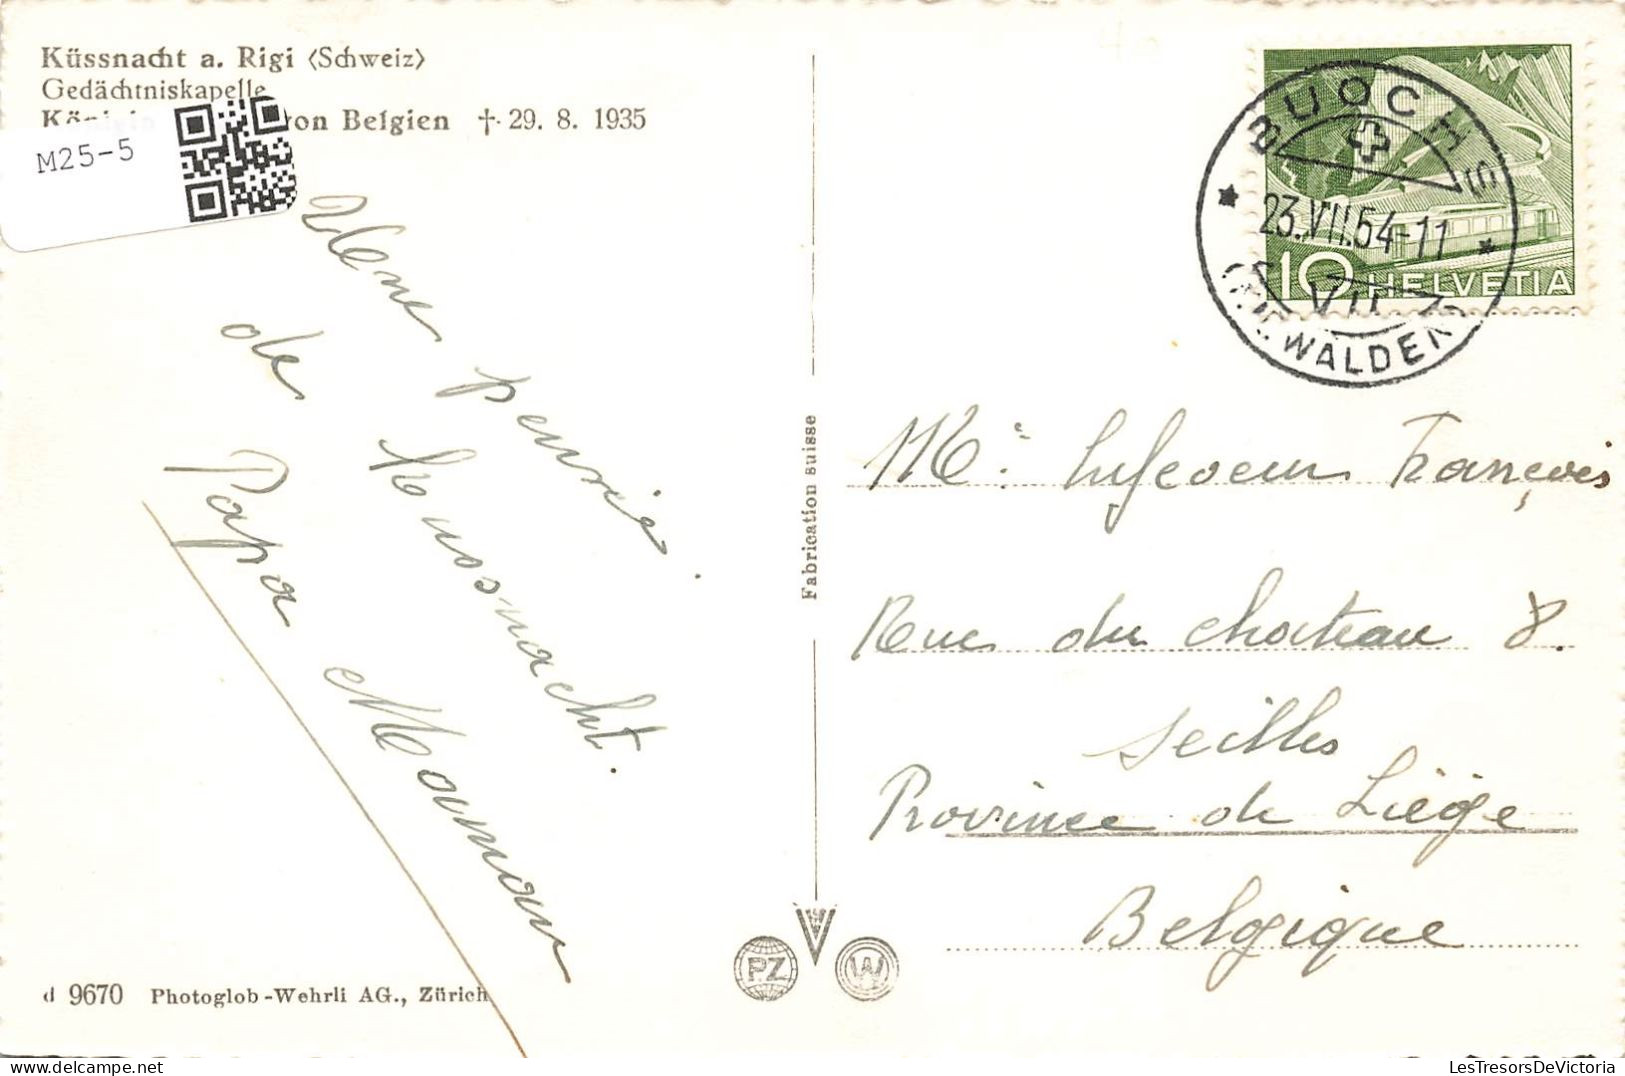 Küssnacht a. Rigi (Schweiz)
Gedächtniskapelle
von Belgien † 29. 8. 1935
M25-5
Une pensée
de Kussnacht.
Papa Maman
Fabrication suisse
BUOCHS
23.VII.54-11
VII
WALDEN)
10 HELVETIA
François
Rue du chateau 8.
Seilles
Province de Liège
Belgique
PZ
W
d 9670 Photoglob-Wehrli AG., Zürich
LesTresorsDeVictoria